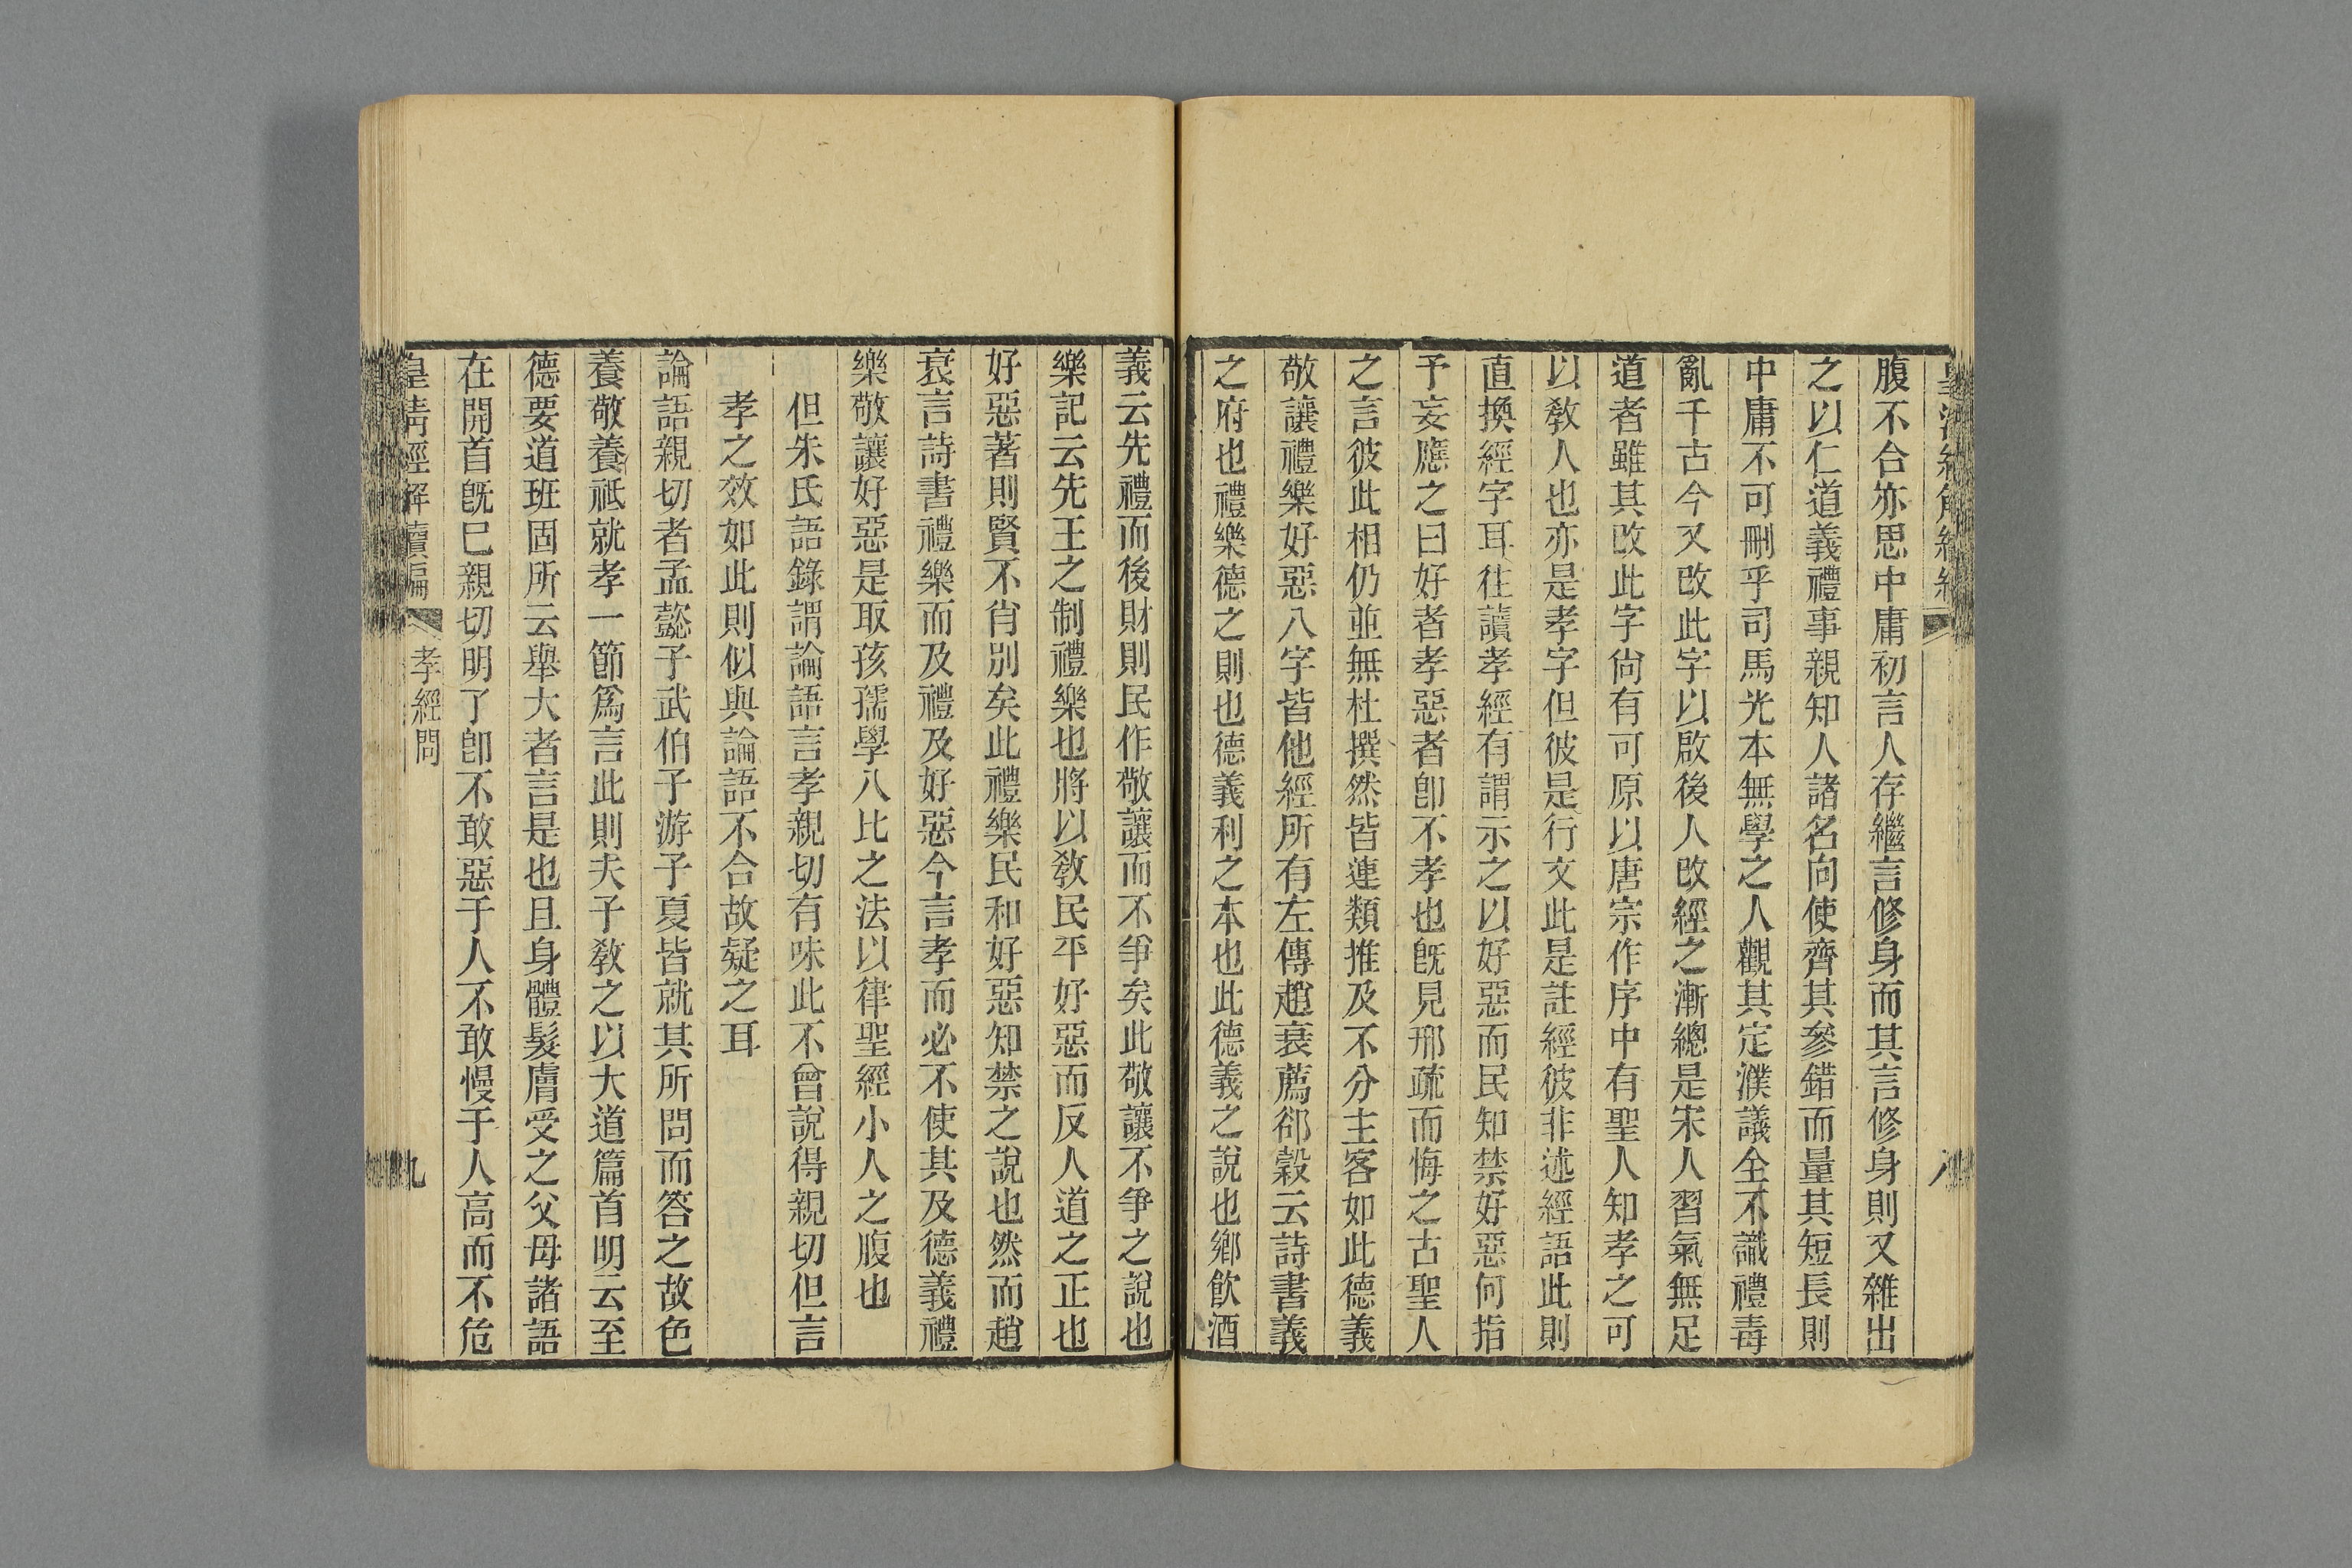 腹不合亦思中庸初言人存繼言修身而其言修身則又雜出
之以仁道義禮事親知人諸名向使齊其參錯而量其短長則
中庸不可刪乎司馬光本無學之人觀其定濮議全不識禮毒
亂千古今又改此字以啟後人改經之漸總是宋人習氣無足
道者雖其改此字尙有可原以唐宗作序中有聖人知孝之可
以敎人也亦是孝字但彼是行文此是註經彼非述經語此則
直換經字耳往讀孝經有謂示之以好惡而民知禁好惡何指
予妄應之曰好者孝惡者卽不孝也旣見邢疏而悔之古聖人
之言彼此相仍並無杜撰然皆連類推及不分主客如此德義
敬讓禮樂好惡八字皆他經所有左傳趙衰薦郤縠云詩書義
之府也禮樂德之則也德義利之本也此德義之說也鄉飮酒
義云先禮而後財則民作敬讓而不爭矣此敬讓不爭之說也
樂記云先王之制禮樂也將以敎民平好惡而反人道之正也
好惡著則賢不肖別矣此禮樂民和好惡知禁之說也然而趙
衰言詩書禮樂而及禮及好惡今言孝而必不使其及德義禮
樂敬讓好惡是取孩孺學八比之法以律聖經小人之腹也
但朱氏語錄謂論語言孝親切有味此不曾說得親切但言
孝之效如此則似與論語不合故疑之耳
論語親切者孟懿子武伯子游子夏皆就其所問而答之故色
養敬養祗就孝一節爲言此則夫子敎之以大道篇首明云至
德要道班固所云舉大者言是也且身體髮膚受之父母諸語
在開首旣已親切明了卽不敢惡于人不敢慢于人高而不危
皇淸經解續編 孝經問 九